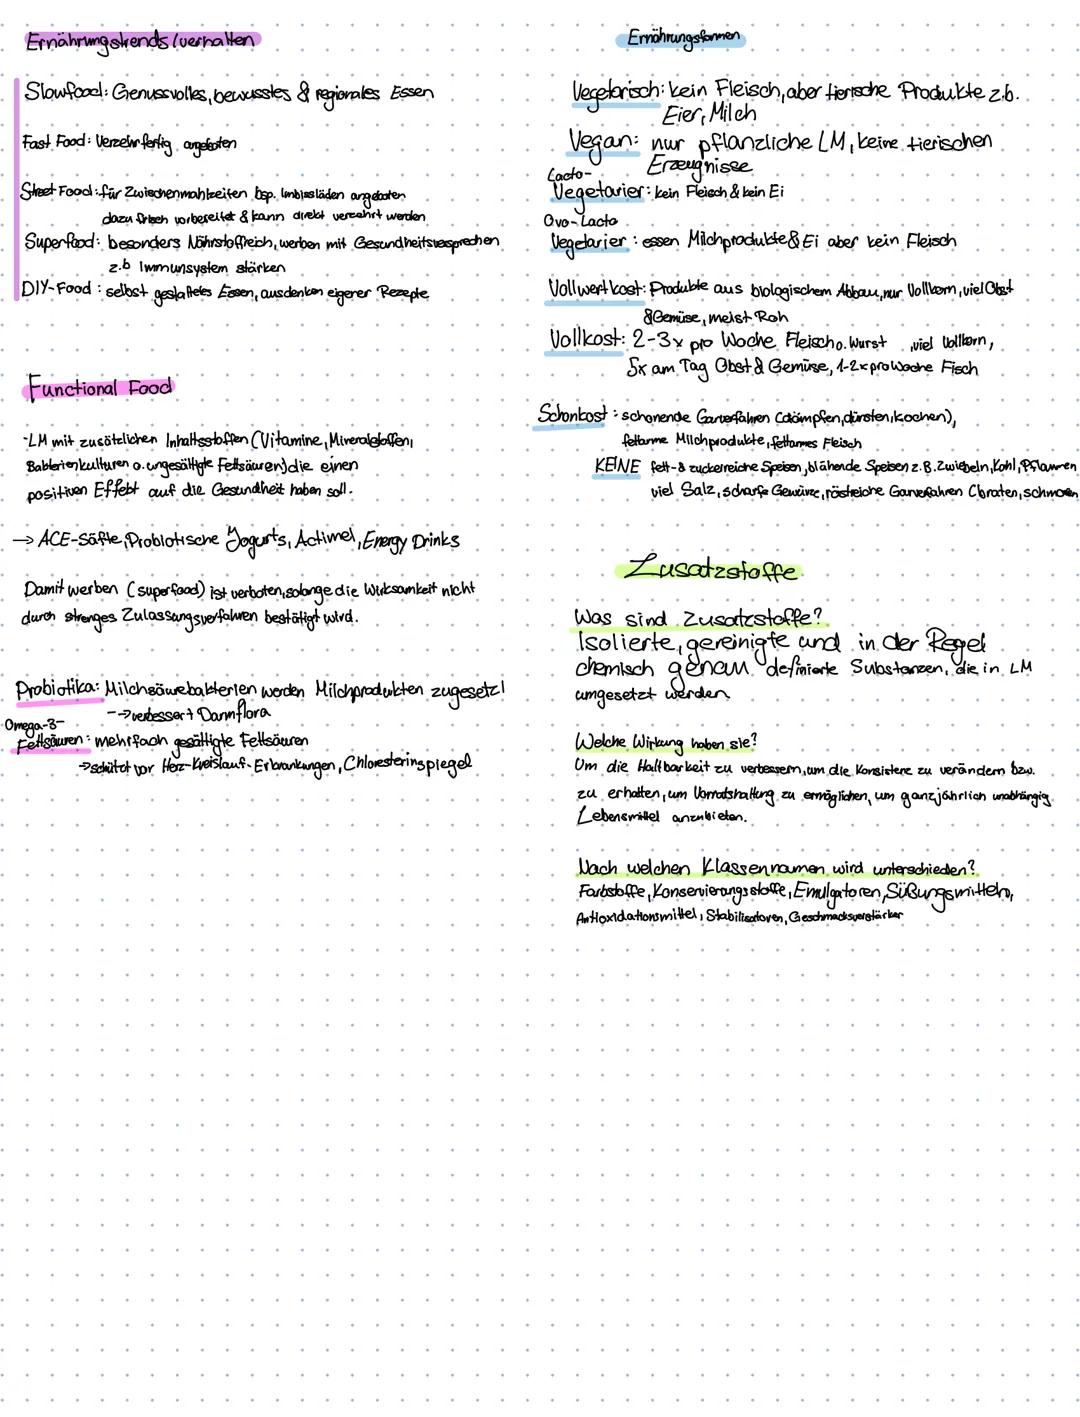 Ernährungstrends/verhalten
Slowfood: Genussvolles, bewusstes & regionales Essen
Fast Food: Verzehrfertig angeboten
Street Food: für Zwischenmahlzeiten bsp. Imbissläden angeboten
dazu frisch vorbereitet & kann direkt verzehrt werden
Superfood: besonders Nährstoffreich, werben mit Gesundheitsversprechen
z.b Immunsystem stärken
DIY-Food: selbst gestaltetes Essen, ausdenken eigener Rezepte
Functional Food
-LM mit zusätzlichen Inhaltsstoffen (Vitamine, Mineralstoffen,
Bakterienkulturen o. ungesättigte Fettsäuren) die einen
positiven Effekt auf die Gesundheit haben soll.
→ ACE-Säfte, Probiotische Yogurts, Actimel, Energy Drinks
Damit werben (superfood) ist verboten, solange die Wirksamkeit nicht
durch strenges Zulassungsverfahren bestätigt wird.
Probiotika: Milchsäurebakterien werden Milchprodukten zugesetzt
-→ verbessert Darmflora
Omega-3-
Fettsäuren: mehrfach gesättigte Fettsäuren
→ schützt vor Herz-Kreislauf-Erkrankungen, Chloresterinspiegel
Ernährungsformen
Vegetarisch: kein Fleisch, aber tierische Produkte z.b.
Eier, Milch
Vegan: nur pflanzliche LM, keine tierischen
Erzeugnisse
Lacto-
Vegetarier: kein Fleisch & kein Ei
Ovo-Lacto
Vegetarier: essen Milchprodukte & Ei aber kein Fleisch
Vollwertkost: Produkte aus biologischem Abbau, nur Vollkorn, viel Obst
& Gemüse, meist Roh
Vollkost: 2-3x pro Woche Fleisch o. Wurst, viel Vollkorn,
5x am Tag Obst & Gemüse, 1-2x pro Woche Fisch
Schonkost: schonende Garverfahren (dämpfen, dünsten, kochen),
fettarme Milchprodukte, fettarmes Fleisch
KEINE fett- & zuckerreiche Speisen, blähende Speisen z.B. Zwiebeln, Kohl, Pflaumen
viel Salz, scharfe Gewürze, röstreiche Garverfahren (braten, schmoren
Zusatzstoffe
Was sind Zusatzstoffe?
Isolierte, gereinigte und in der Regel
chemisch genau definierte Substanzen, die in LM
umgesetzt werden
Welche Wirkung haben sie?
Um die Haltbarkeit zu verbessern, um die Konsistenz zu verändern bzw.
zu erhalten, um Vorratshaltung zu ermöglichen, um ganzjährlich unabhängig
Lebensmittel anzubieten.
Nach welchen Klassennamen wird unterschieden?
Farbstoffe, Konservierungsstoffe, Emulgatoren, Süßungsmitteln,
Antioxidationsmittel, Stabilisatoren, Geschmacksverstärker